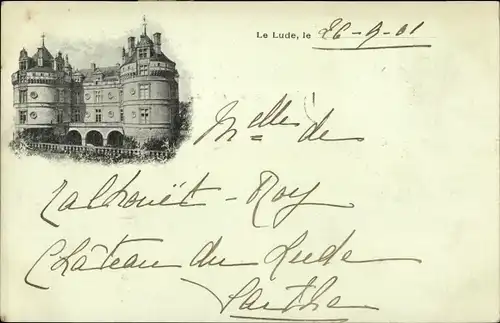 Le Lude, le 26-9-01
Melle de
Talhouët-Roy
Château du Lude
Sarthe